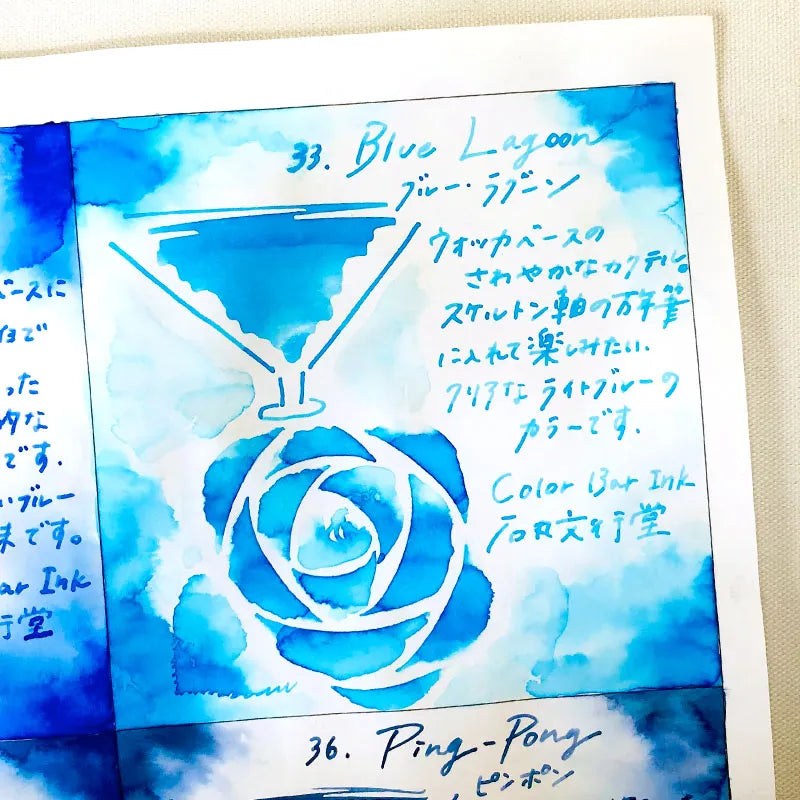 33. Blue Lagoon
ブルー・ラグーン
ウォッカベースの
さわやかなカクテル。
スケルトン軸の万年筆
に入れて楽しみたい、
クリアなライトブルーの
カラーです.
Color Bar Ink
石丸文行堂
ベースに
で
った
な
です.
いブルー
です。
ar Ink
行堂
36. Ping-Pong
ピンポン